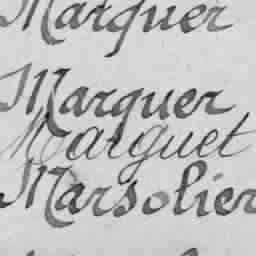 Marquer
Marquer
Marguet
Marsolier